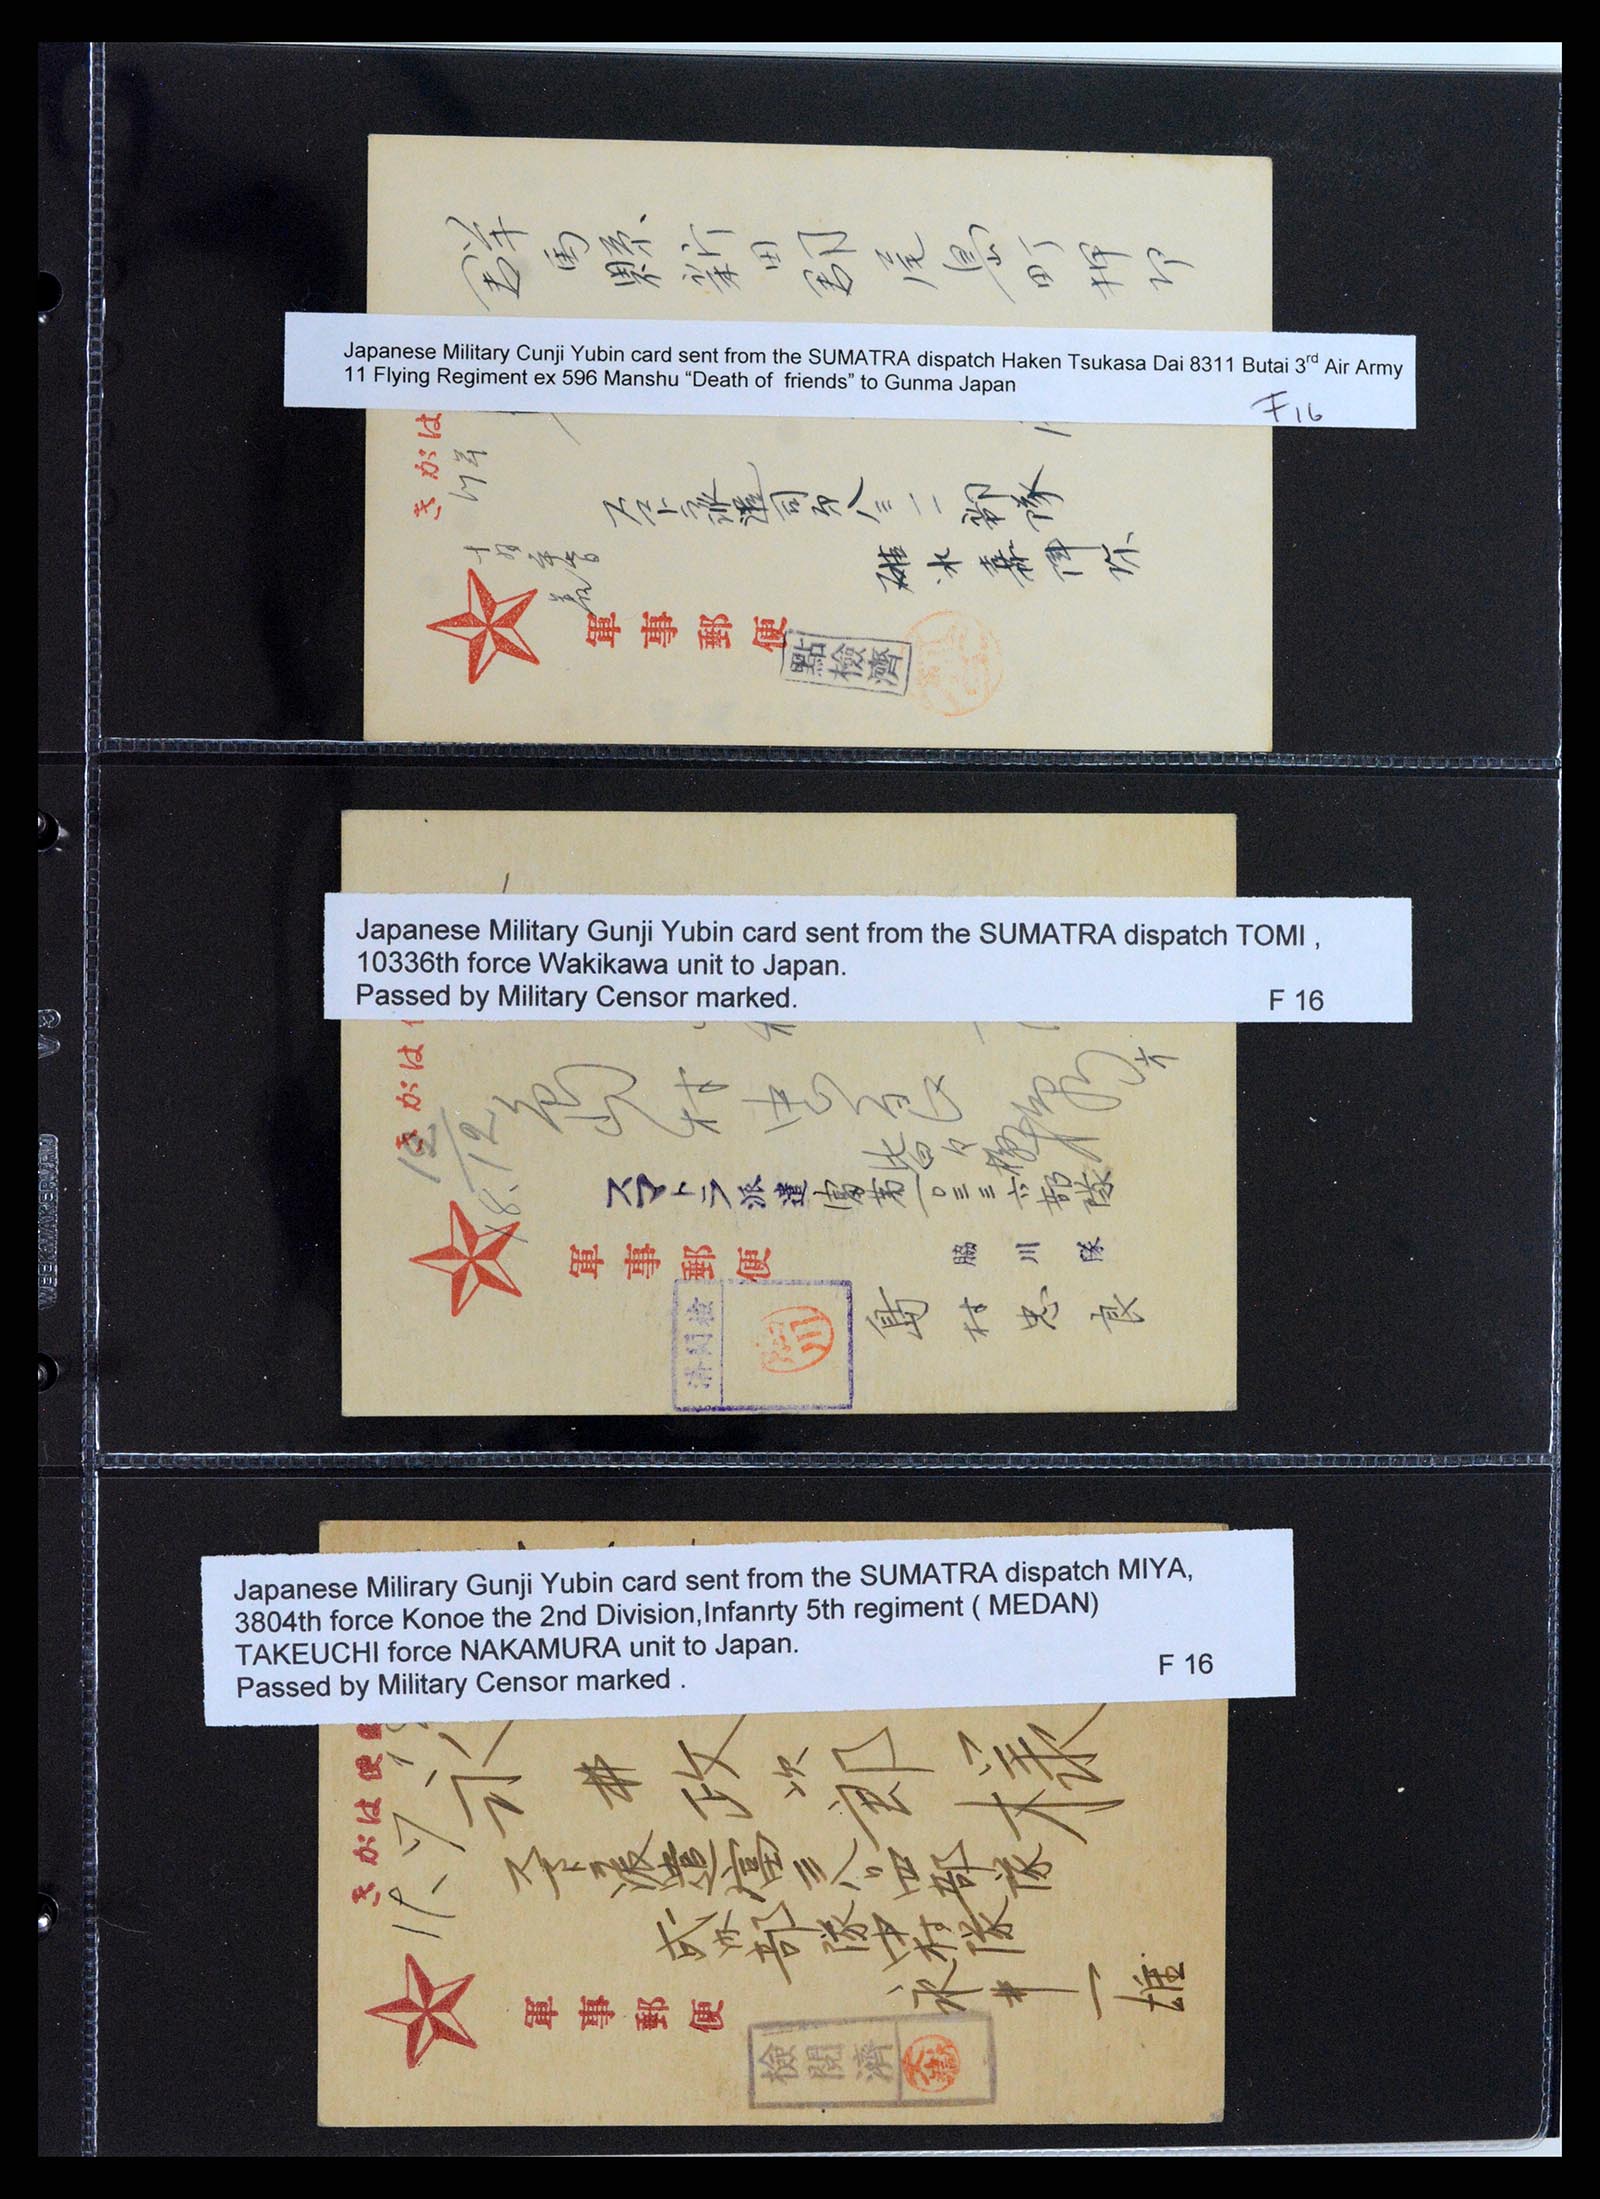 群馬縣新田郡尾島町
Japanese Military Cunji Yubin card sent from the SUMATRA dispatch Haken Tsukasa Dai 8311 Butai 3rd Air Army
11 Flying Regiment ex 596 Manshu “Death of friends” to Gunma Japan
F16
きがは
スマトラ派遣司第八三一一部隊
軍事郵便
點檢濟
Japanese Military Gunji Yubin card sent from the SUMATRA dispatch TOMI ,
10336th force Wakikawa unit to Japan.
Passed by Military Censor marked.
F 16
きがは
12/12
島村忠良
スマトラ派遣富第一〇三三六部隊
脇川隊
島村忠良
軍事郵便
檢閲濟
Japanese Milirary Gunji Yubin card sent from the SUMATRA dispatch MIYA,
3804th force Konoe the 2nd Division,Infanrty 5th regiment ( MEDAN)
TAKEUCHI force NAKAMURA unit to Japan.
Passed by Military Censor marked .
F 16
きがは便
永井政次郎様
部隊中村隊
永井一雄
軍事郵便
檢閲濟
WEEKA